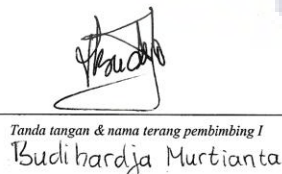 Tanda tangan & nama terang pembimbing I
Budihardja Murtianta